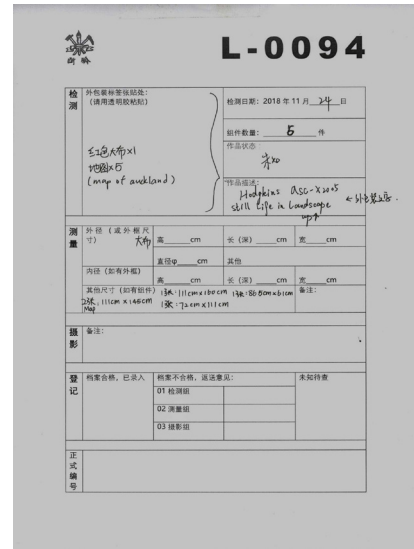 L-0094
检测
外包装标签张贴处:
(请用透明胶粘贴)
红色大布x1
地图x5
(map of auckland)
检测日期: 2018 年 11 月 24 日
组件数量: 6 件
作品状态:
作品描述:
Hodgkins asc-x2005
still life in Landscape
测量
外径 (或外框尺寸)
大布
高 cm
长 (深) cm
宽 cm
直径φ cm
其他
内径 (如有外框)
高 cm
长 (深) cm
宽 cm
其他尺寸 (如有组件)
2张: 111cm x 146cm
Map
1张: 111cm x 160cm
1张: 86.5cm x 61cm
1张: 72cm x 111cm
备注:
摄影
备注:
登记
档案合格, 已录入
档案不合格, 返送意见:
未知待查
01 检测组
02 测量组
03 摄影组
正式编号